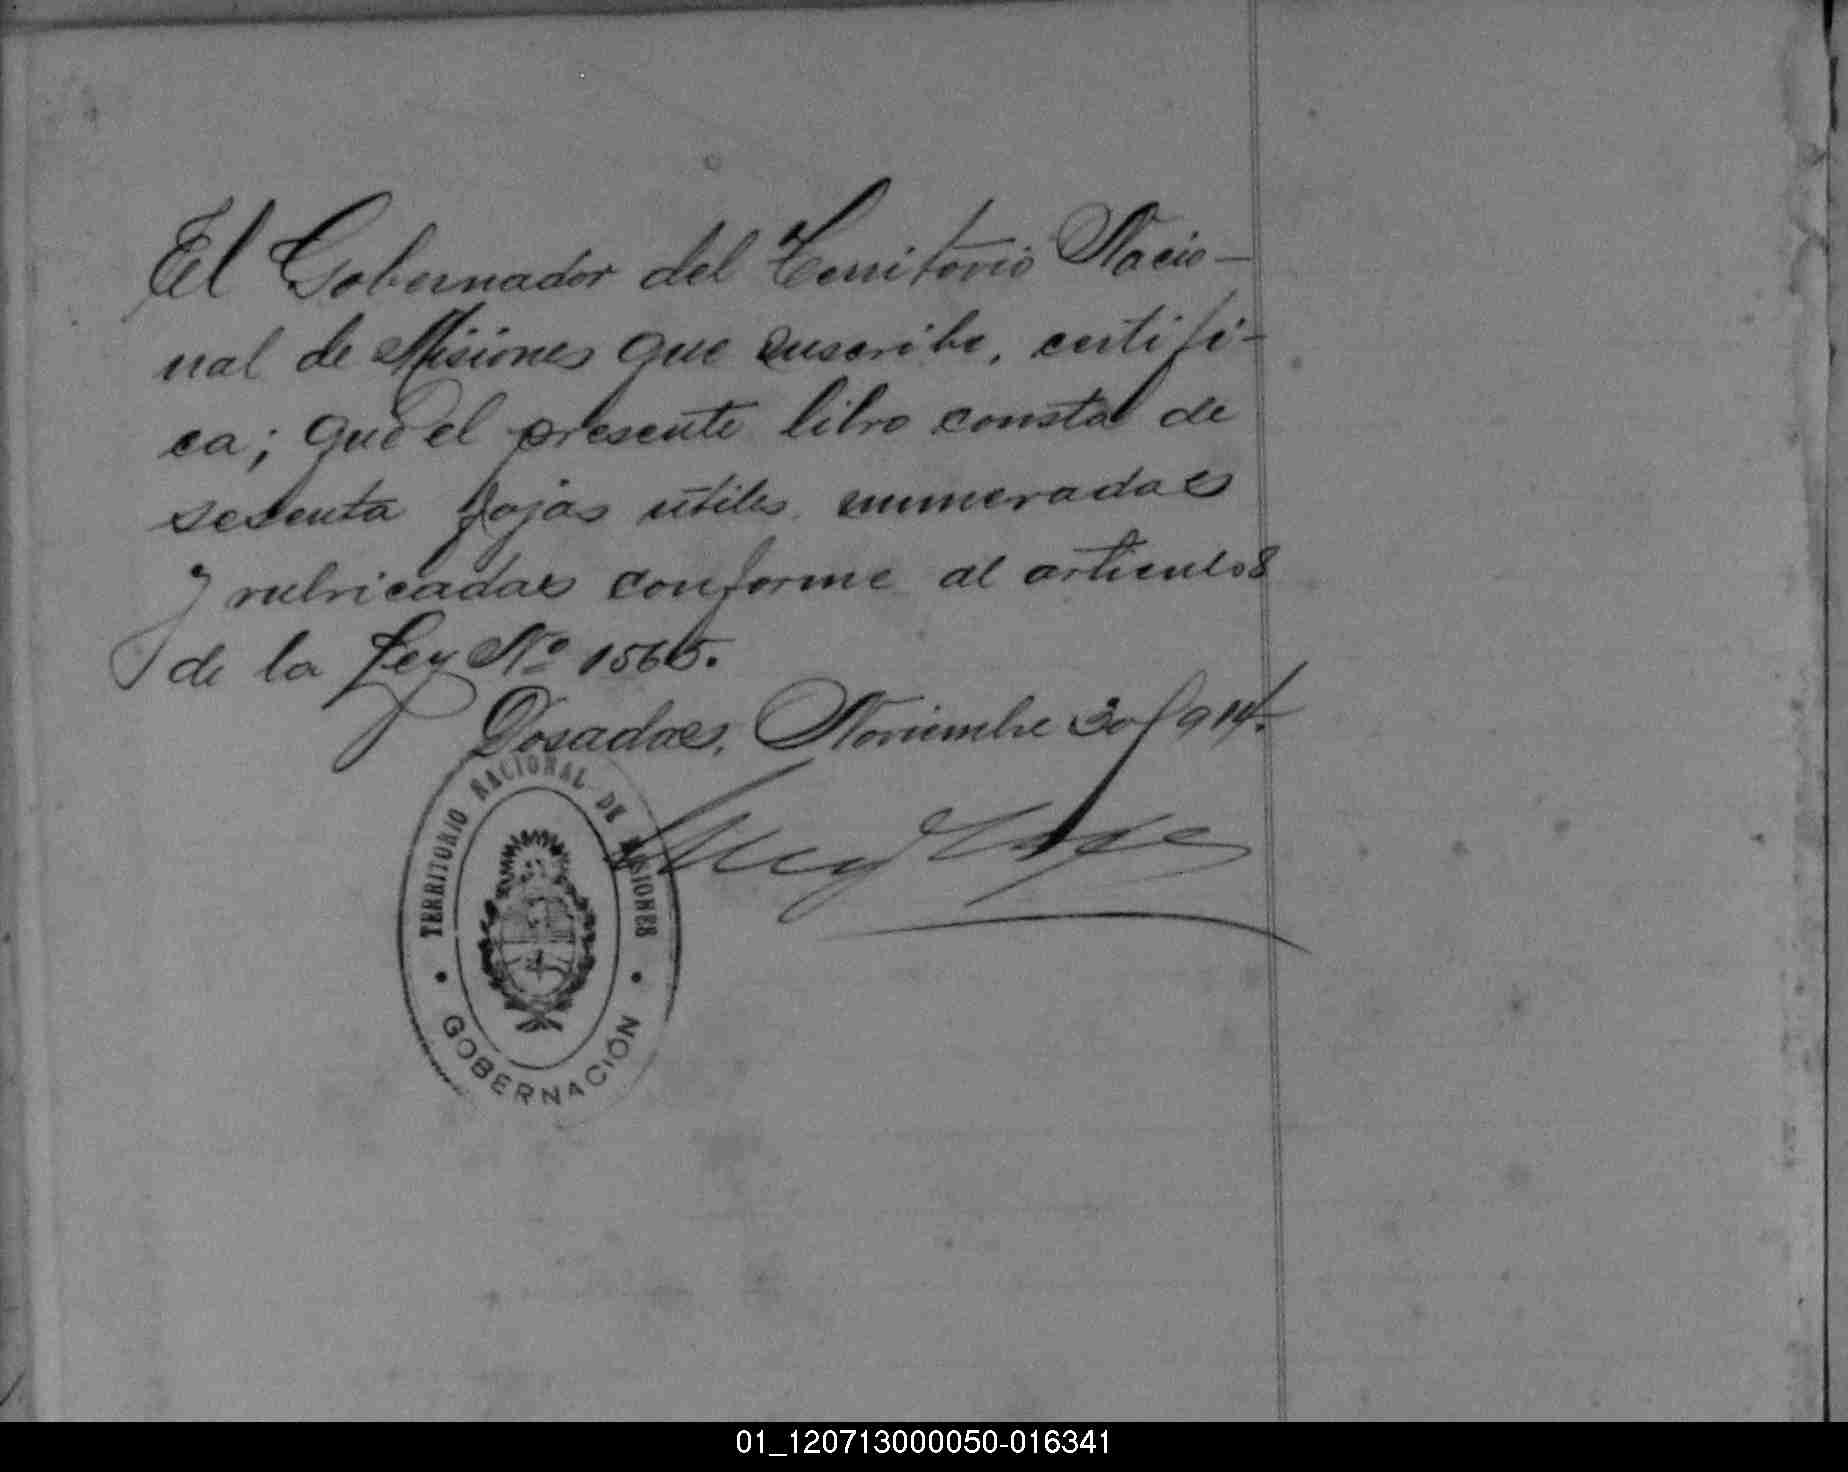 El Gobernador del Territorio Nacio-
nal de Misiones que suscribe, certifi-
ca; que el presente libro consta de
sesenta fojas utiles numeradas
y rubricadas conforme al articulo 8
de la Ley Nº 1565.
Posadas, Noviembre 30/914.
TERRITORIO NACIONAL DE MISIONES
GOBERNACIÓN
01_120713000050-016341